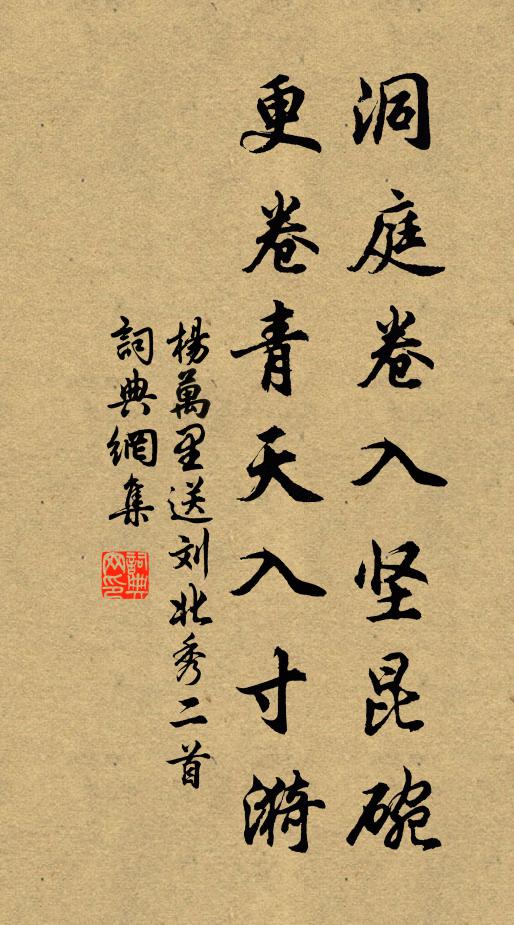 洞庭卷入坚昆碗
更卷青天入寸漪
楊萬里送刘北秀二首
詞典網集
詞典網印